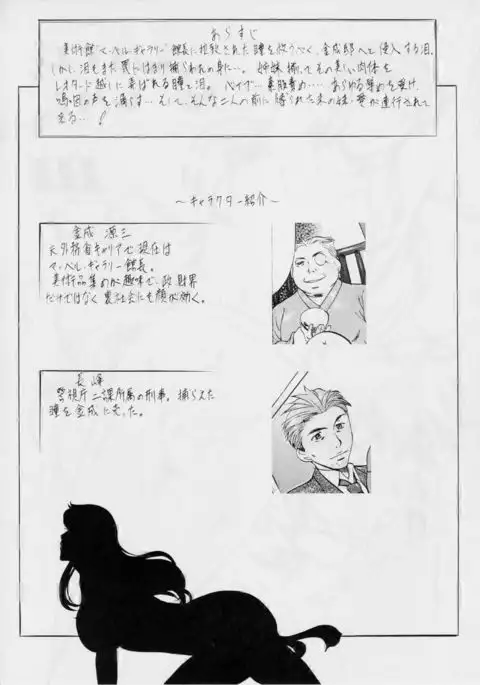 あらすじ
美術館マーベルギャラリー館長に拉致された瞳を救うべく、金成邸へと侵入する泪。
しかし、泪もまた罠にはまり捕らわれの身に…。姉妹揃ってその美しい肉体を
レオタード越しに弄ばれる瞳と泪。バイブ…薬
あらゆる辱めを受け、
の声を漏らす…そして、そんな二人の前に縛られた末の妹・愛が連行されて
くる…!
～キャラクター紹介～
金成 源三
元外務省キャリアで現在は
マーベルギャラリー館長。
美術品集めが趣味で、政財界
だけではなく裏社会にも顔が効く。
長峰
警視庁二課所属の刑事。捕らえた
瞳を金成に売った。